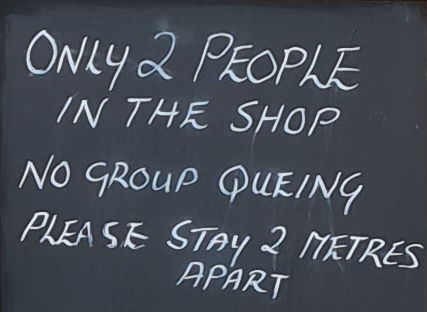 ONLY 2 PEOPLE
IN THE SHOP
NO GROUP QUEING
PLEASE STAY 2 METRES
APART